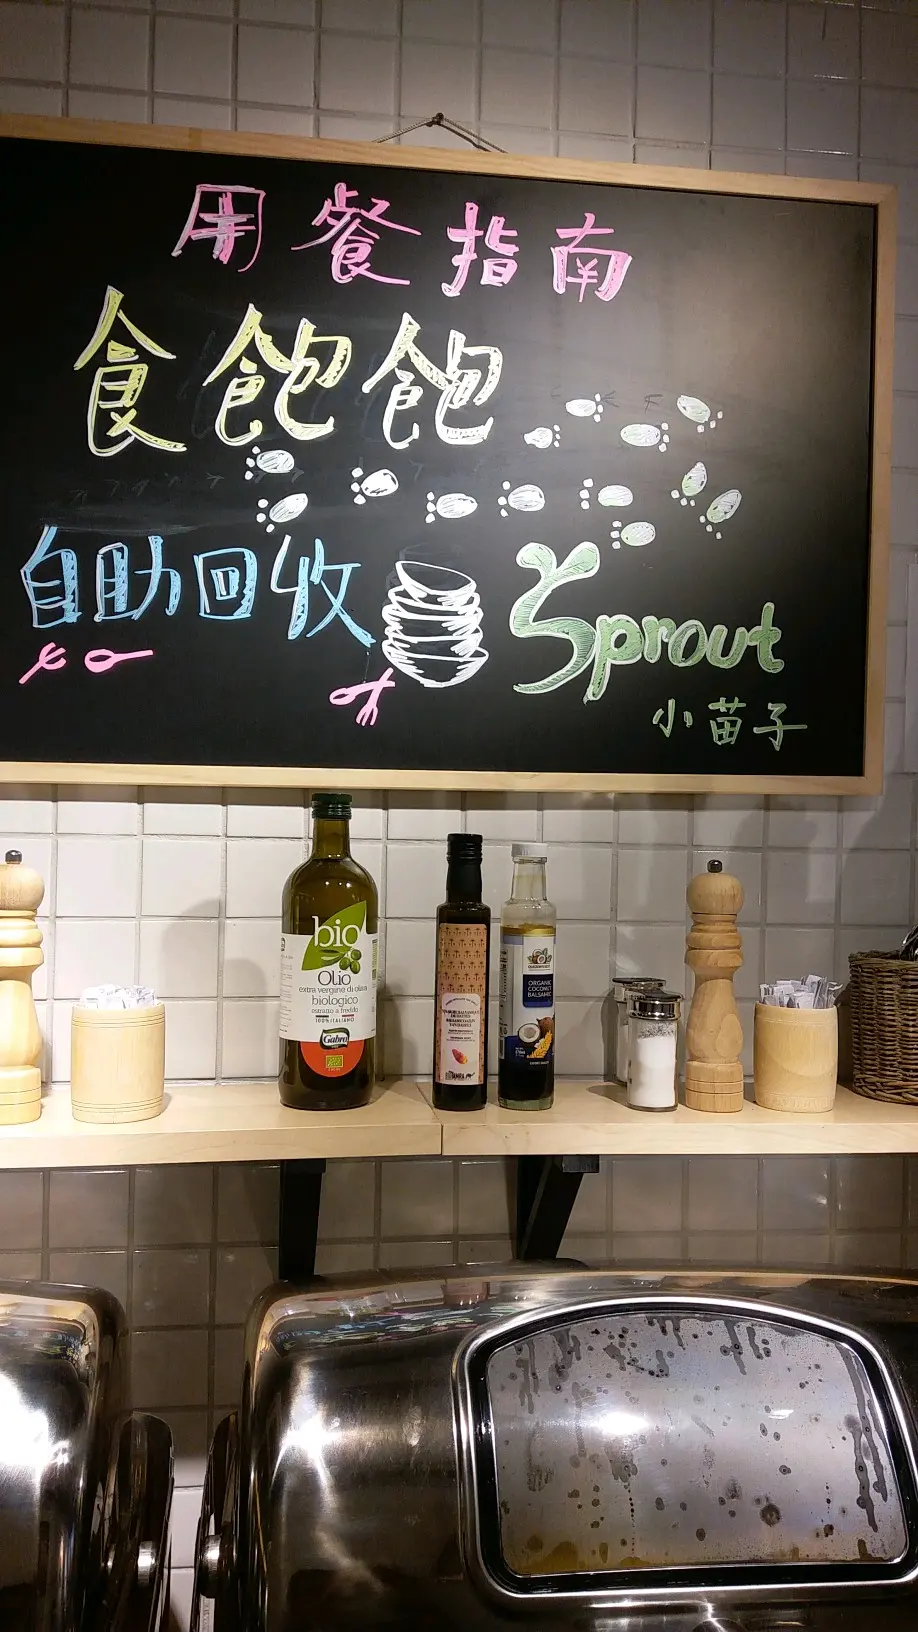 用餐指南
食飽飽
自助回收
Sprout
小苗子
bio
Olio
extra vergine di oliva
biologico
estratto a freddo
100% ITALIANO
Gabro
ORGANIC
COCONUT
BALSAMIC